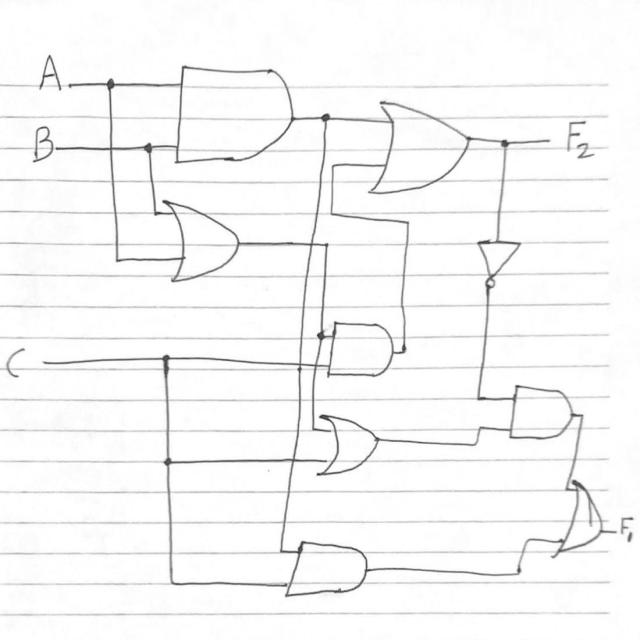 A
B
F₂
C
F₁